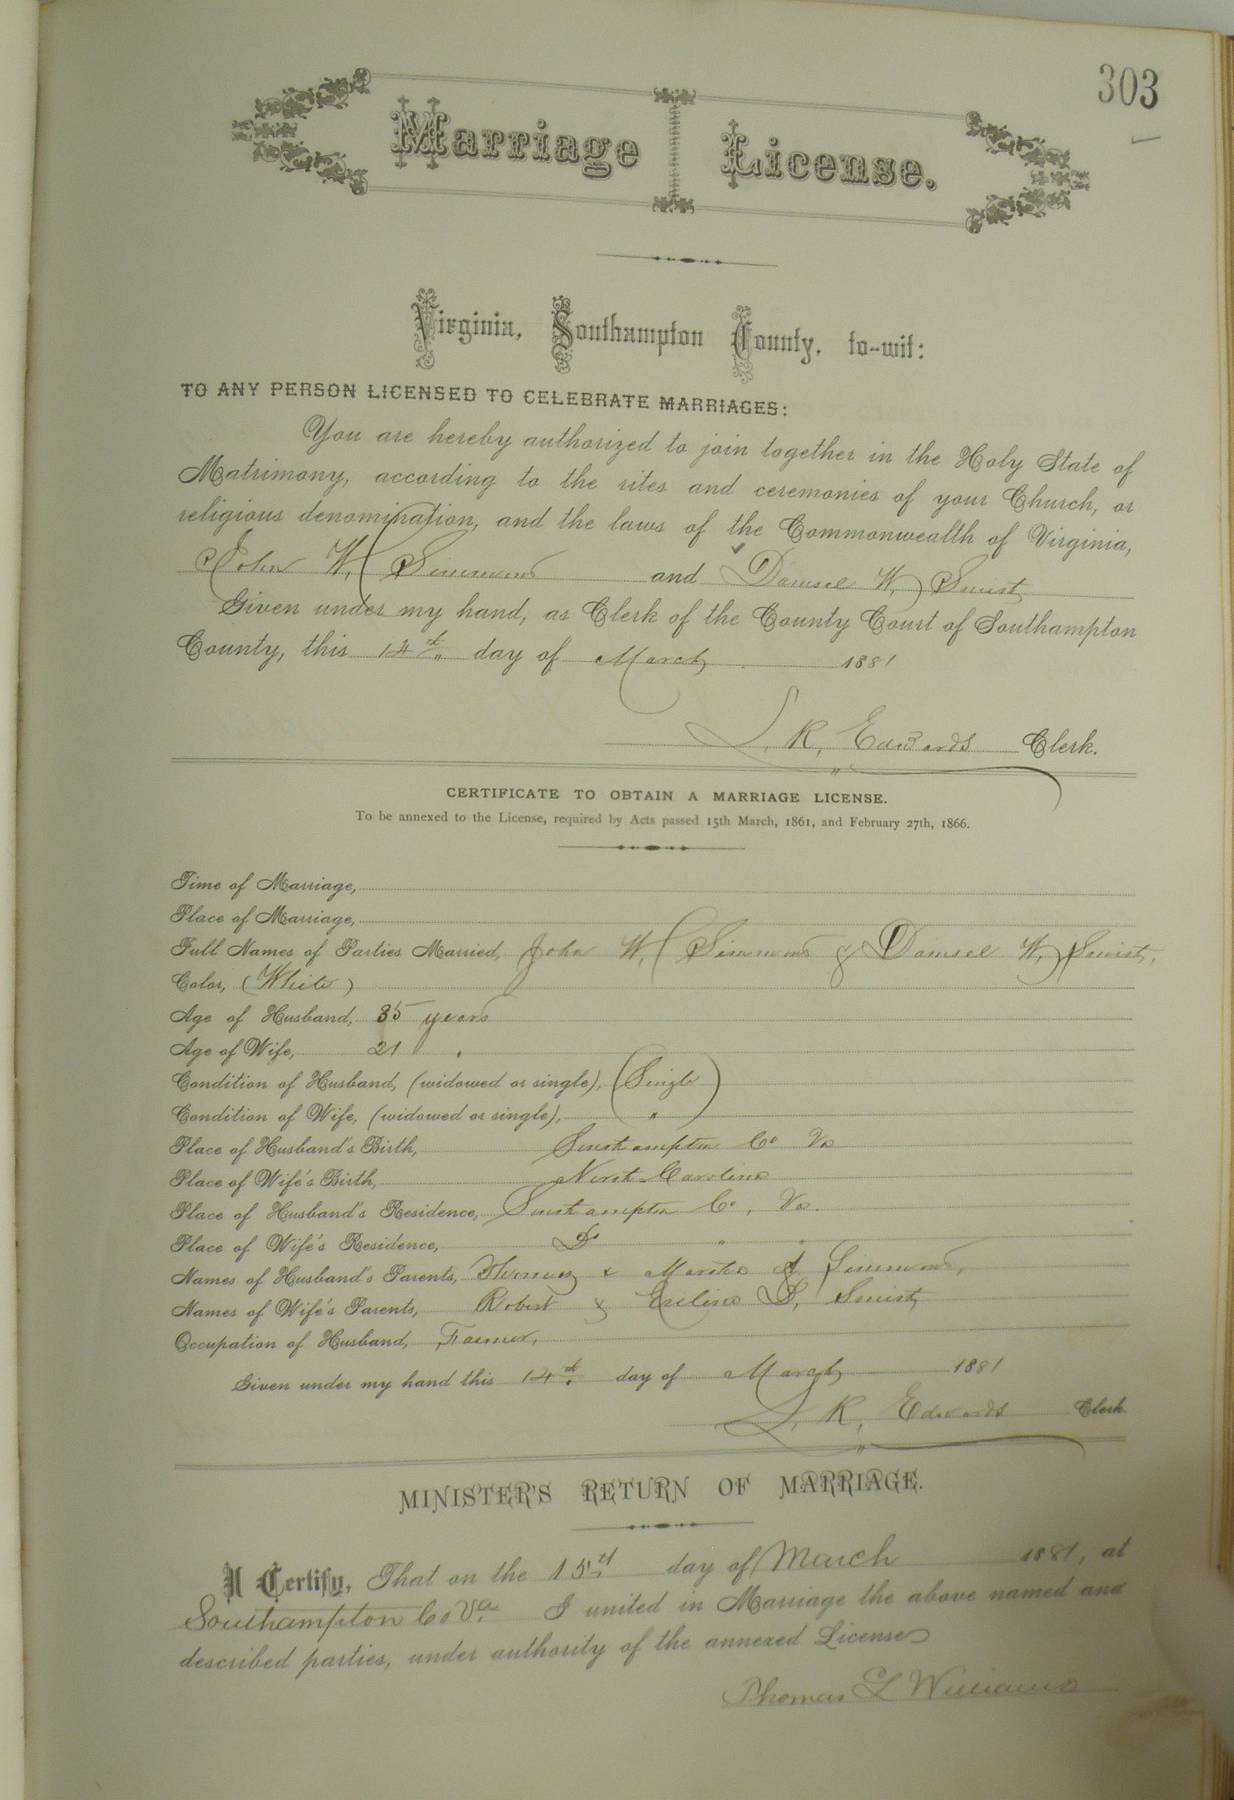 303
Marriage License.
Virginia, Southampton County, to-wit:
TO ANY PERSON LICENSED TO CELEBRATE MARRIAGES:
You are hereby authorized to join together in the Holy State of
Matrimony, according to the rites and ceremonies of your Church, or
religious denomination, and the laws of the Commonwealth of Virginia,
John W. Simmons and Damsel W.
Given under my hand, as Clerk of the County Court of Southampton
County, this 14th day of March 1881
L. R. Edwards Clerk.
CERTIFICATE TO OBTAIN A MARRIAGE LICENSE.
To be annexed to the License, required by Acts passed 15th March, 1861, and February 27th, 1866.
Time of Marriage,
Place of Marriage,
Full Names of Parties Married, John W. Simmons & Damsel W.
Color, (White)
Age of Husband, 35 years
Age of Wife, 21 "
Condition of Husband, (widowed or single), (Single)
Condition of Wife, (widowed or single), "
Place of Husband's Birth, Southampton Co Va
Place of Wife's Birth, North Carolina
Place of Husband's Residence, Southampton Co, Va.
Place of Wife's Residence, Do " "
Names of Husband's Parents, & Martha Simmons,
Names of Wife's Parents, Robert &
Occupation of Husband, Farmer,
Given under my hand this 14th day of March 1881
L. R. Edwards Clerk
MINISTER'S RETURN OF MARRIAGE.
I Certify, That on the 15th day of March 1881, at
Southampton Co Va. I united in Marriage the above named and
described parties, under authority of the annexed License
Thomas L Williams